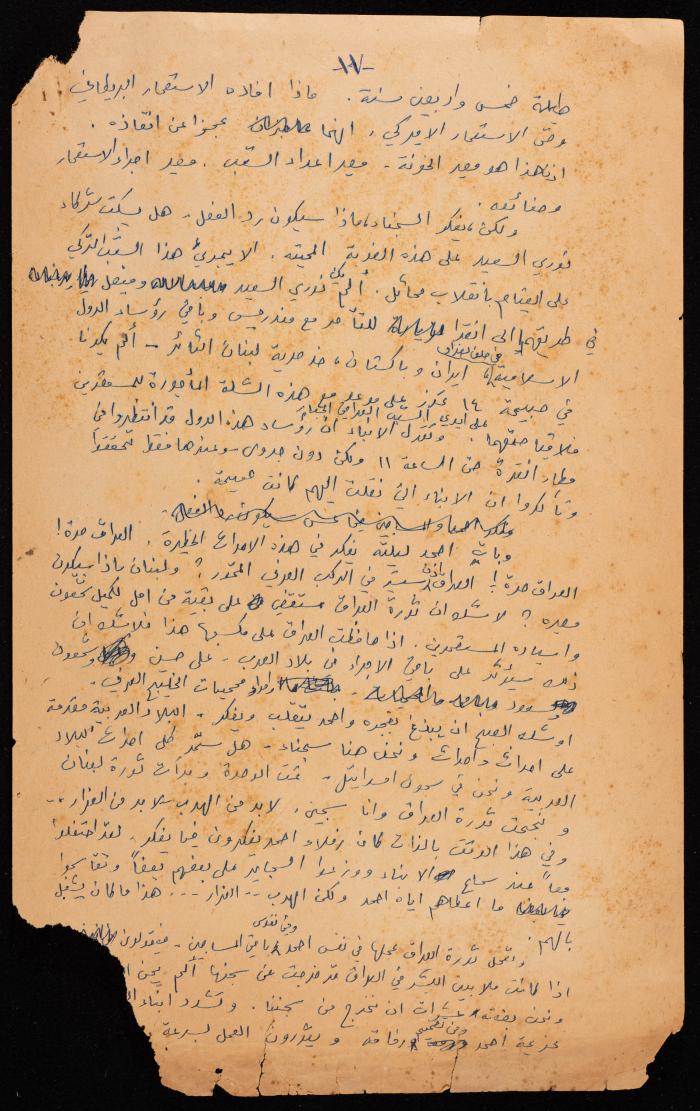 -١٧-
طيلة خمس واربعين سنة. ماذا افاده الاستعمار البريطاني
وحتى الاستعمار الاميركي، انهما عجزا عن انقاذه.
اذن هذا هو مصير الخونة - مصير اعداء الشعب. مصير اجراء الاستعمار
وصنائعه.
ولكن، يفكر السجناء، ماذا سيكون رد الفعل - هل يسكت شركاء
نوري السعيد على هذه الضربة المميتة. الا يجرئ هذا الشعب التركي
على القيام بانقلاب مماثل. ألم يكن نوري السعيد وفيصل
في طريقهما الى انقرا للتآمر مع مندريس وباقي رؤساء الدول
الاسلامية في حلف بغداد، ايران وباكستان، ضد حرية لبنان الثائر - ألم يكونا
في صبيحة ١٤ تموز على موعد مع هذه الشلة المأجورة للمستعمرين
فلاقيا حتفهما على ايدي الشعب العراقي. وتقول الانباء ان رؤساء هذه الدول قد انتظروا في
مطار انقرة حتى الساعة ١١ ولكن دون جدوى وعندها فقط تحققوا
وتأكدوا ان الانباء التي نقلت اليهم كانت صحيحة.
وبات احمد ليلته يفكر في هذه الاحداث الخطيرة. العراق حرة!
العراق حرة! العراق اذن ستسير في الركب العربي المتحرر؟ ولبنان ماذا سيكون
مصيره؟ لا شك ان ثورة العراق ستقضي على بقية من امل لكميل شمعون
واسياده المستعمرين. اذا حافظت العراق على مكسبها هذا فلا شك ان
ذلك سيؤثر على باقي الاجراء في بلاد العرب - على حسين وشمعون
وسعود وامراء محميات الخليج العربي -
اوشك الصبح ان يبزغ بفجره واحمد يتقلب ويفكر - البلاد العربية مقدمة
على احداث واحداث ونحن هنا سجناء - هل ستمر كل احداث البلاد
العربية ونحن في سجون اسرائيل - تمت الوحدة وبدأت ثورة لبنان
ونجحت ثورة العراق وانا سجين، لا بد من الهرب - لا بد من الفرار ..
وفي هذا الوقت بالذات كان رفلاء احمد يفكرون فيما يفكر. لقد احتفلوا
معاً عند سماع الانباء ووزعوا السجاير على بعضهم بعضاً وتقاسموا
ما اعطاهم اياه احمد ولكن الهرب -- الفرار --- هذا ما كان يشغل
بالهم.
وتفعل ثورة العراق عملها في نفس احمد وفي نفوس باقي المساجين - فيقولون
اذا كانت ملايين البشر في العراق قد خرجت عن سجنها ألم يحن
ونحن بضعة عشرات ان نخرج من سجننا. وتشدد انباء
عزيمة احمد ورفاقه ويقررون العمل بسرعة